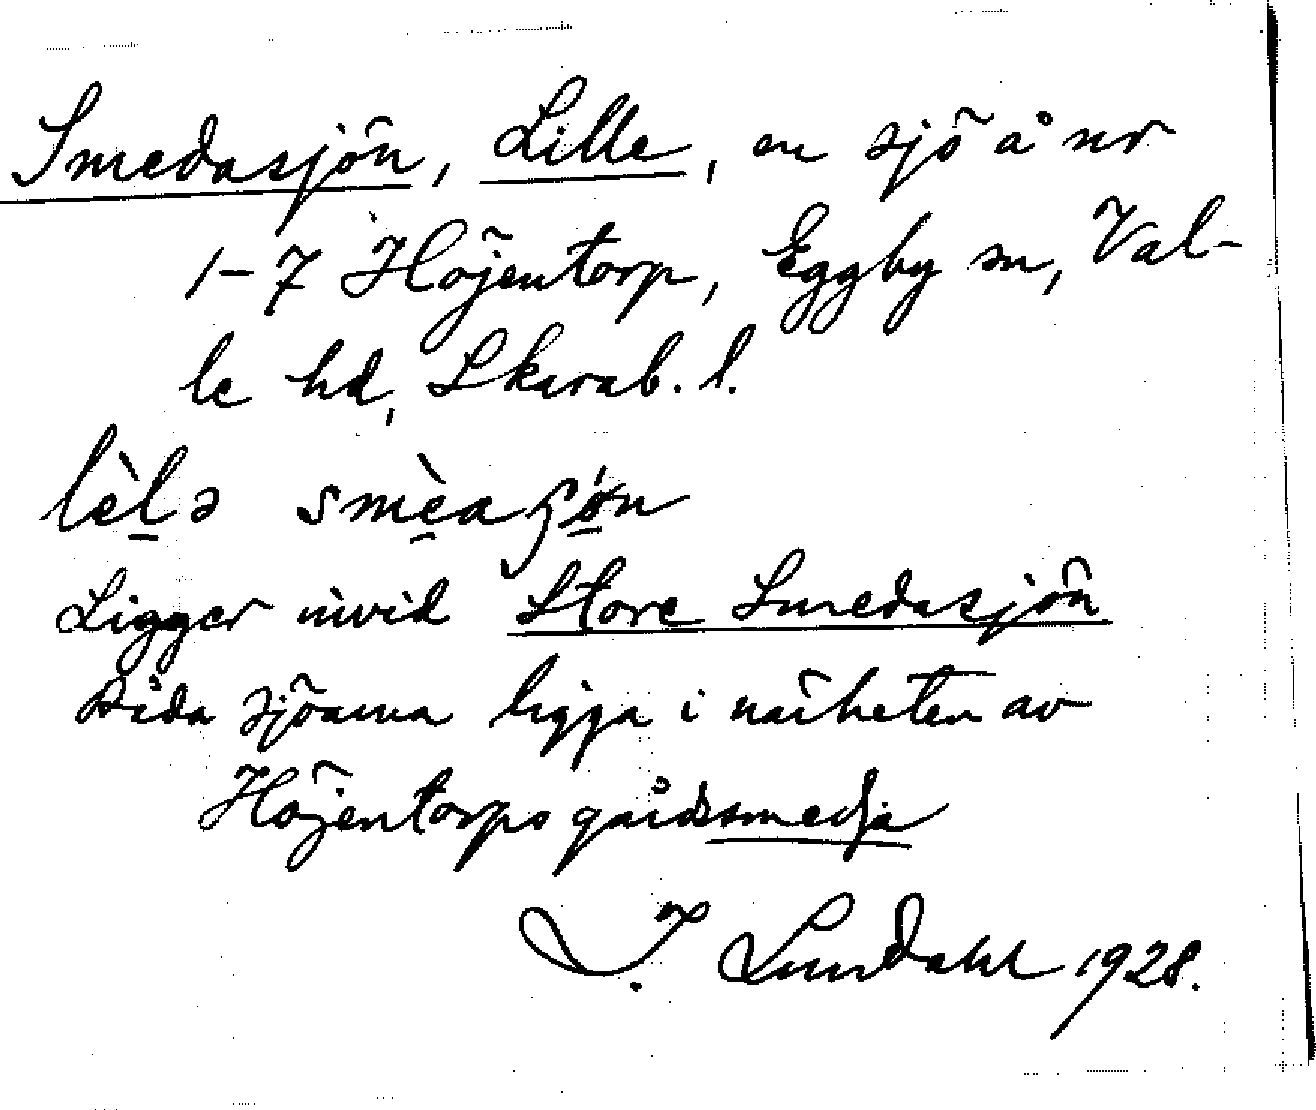 Smedasjön, Lille, en sjö å nr
1-7 Höjentorp, Eggby sn, Val-
le hd, Skarab. l.
lèlə smèaʃǿn
Ligger invid Store Smedasjön
Båda sjöarna ligga i närheten av
Höjentorps gårdssmedja
I. Lundahl 1928.